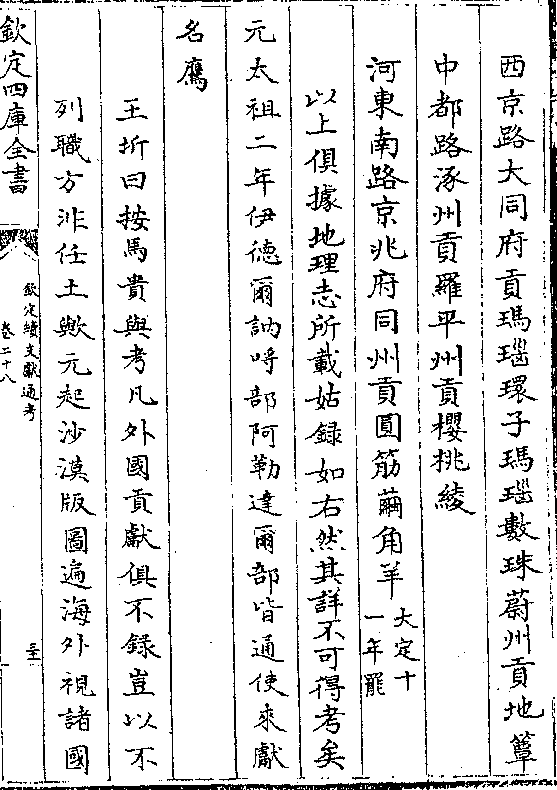 西京路大同府貢瑪瑙環子瑪瑙數珠蔚州貢地簟
中都路涿州貢羅平州貢櫻桃綾
河東南路京兆府同州貢圓筋繭角羊大定十
一年罷
以上俱據地理志所載姑録如右然其詳不可得考矣
元太祖二年伊德爾訥呼部阿勒達爾部皆通使來獻
名鷹
王圻曰按馬貴與考凡外國貢獻俱不錄豈以不
列職方非任土歟元起沙漠版圖遍海外視諸國
欽定四庫全書
欽定續文獻通考
卷二十八